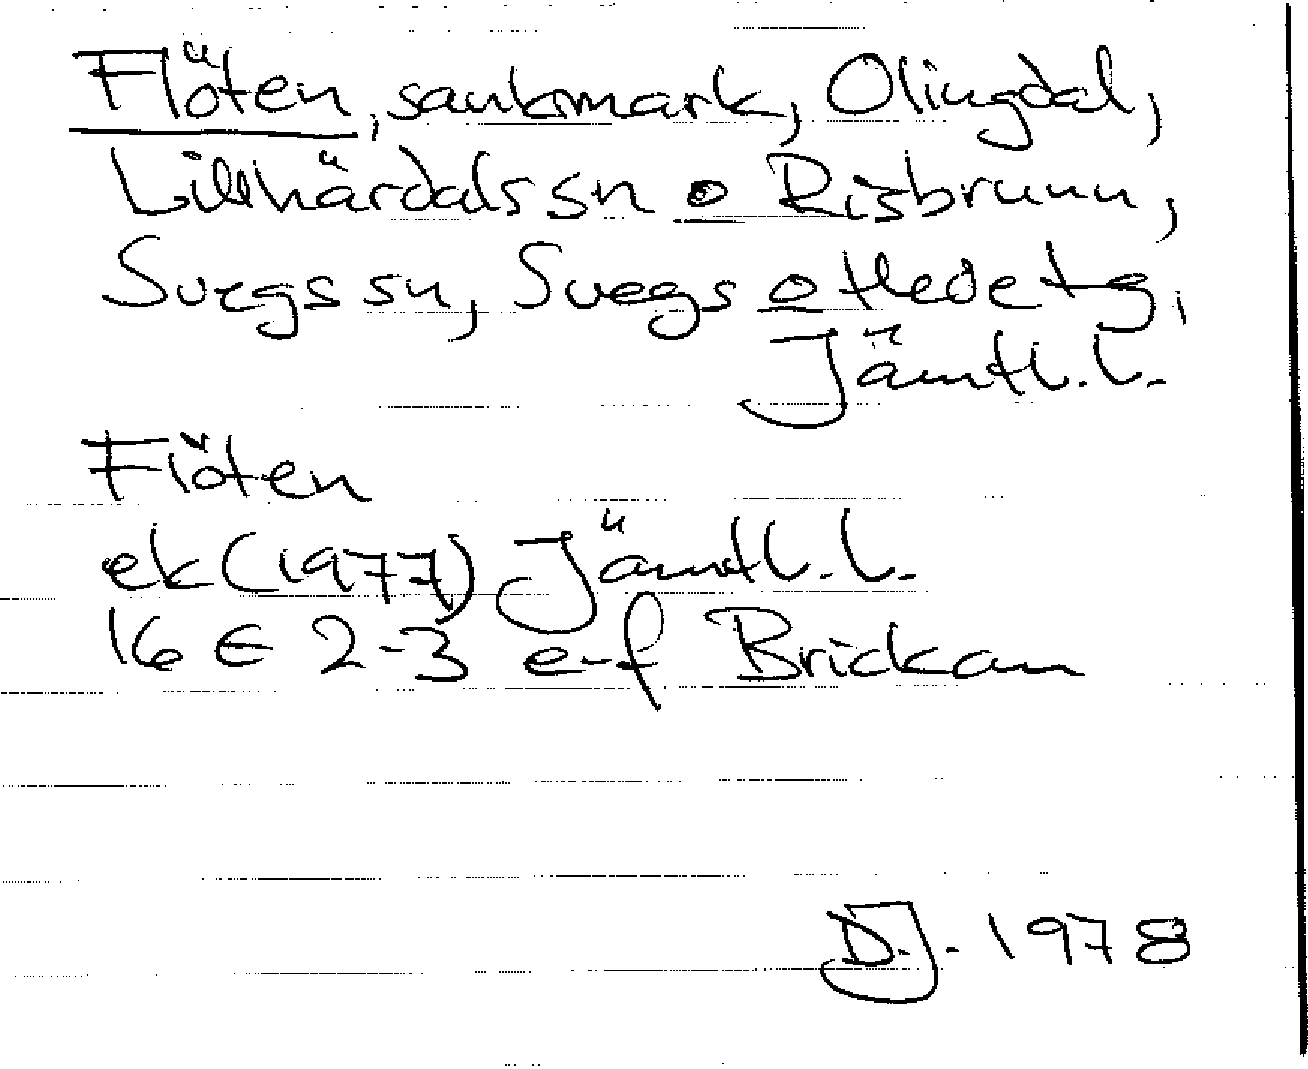 Flöten, sankmark, Olingdal,
Lillhärdals sn o Risbrunn,
Svegs sn, Svegs o Hede tg,
Jämtl. l.
Flöten
ek (1977) Jämtl. l.
16 E 2-3 e-f Brickan
D.J. 1978